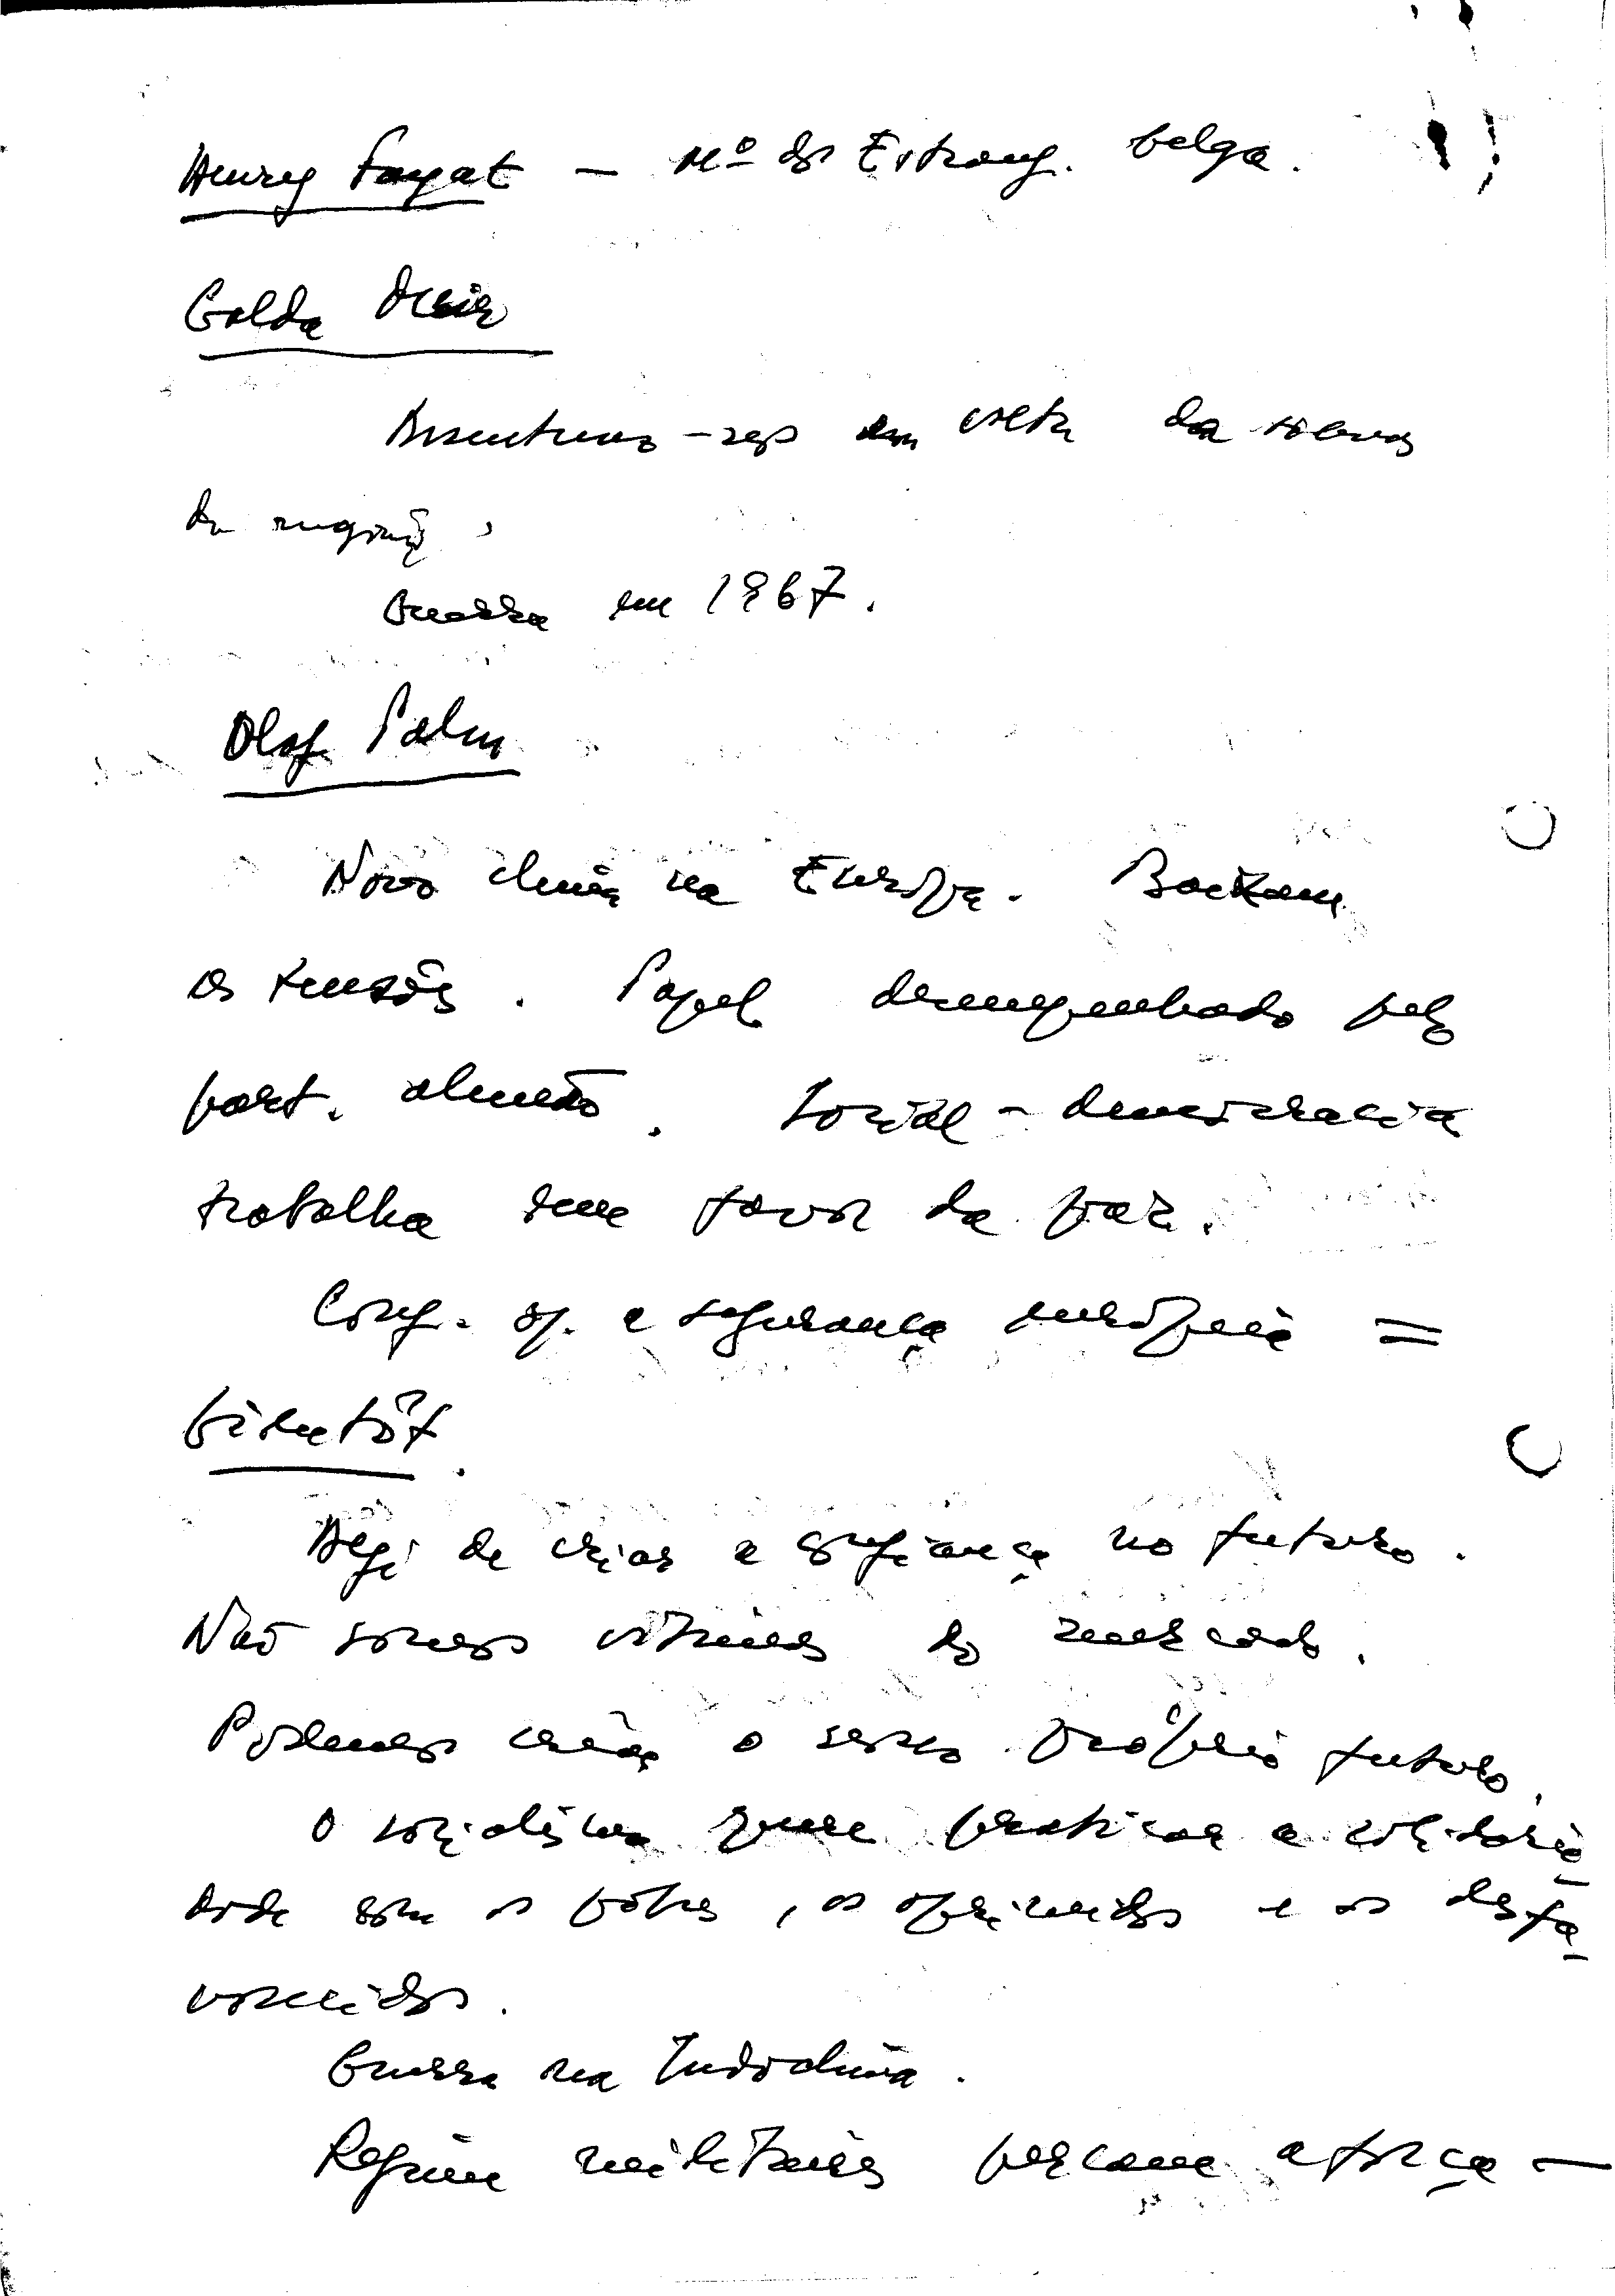 Henry Fayat — Mº dos Estrang. belga.
Golda Meir
da
da região.
Guerra em 1967.
Olof Palm
Novo clima na Europa. Baixam
as tensões. Papel desempenhado pelo
part. alemão. Social-democracia
trabalha em favor da paz.
Conf. e segurança europeia =
bientôt.
de criar a confiança no futuro.
Não somos vítimas do mercado.
Podemos criar o nosso próprio futuro.
O socialismo quere praticar a solidarie-
dade com os pobres, os oprimidos e os desfa-
vorecidos.
Guerra na Indochina.
Regime militares pela força —